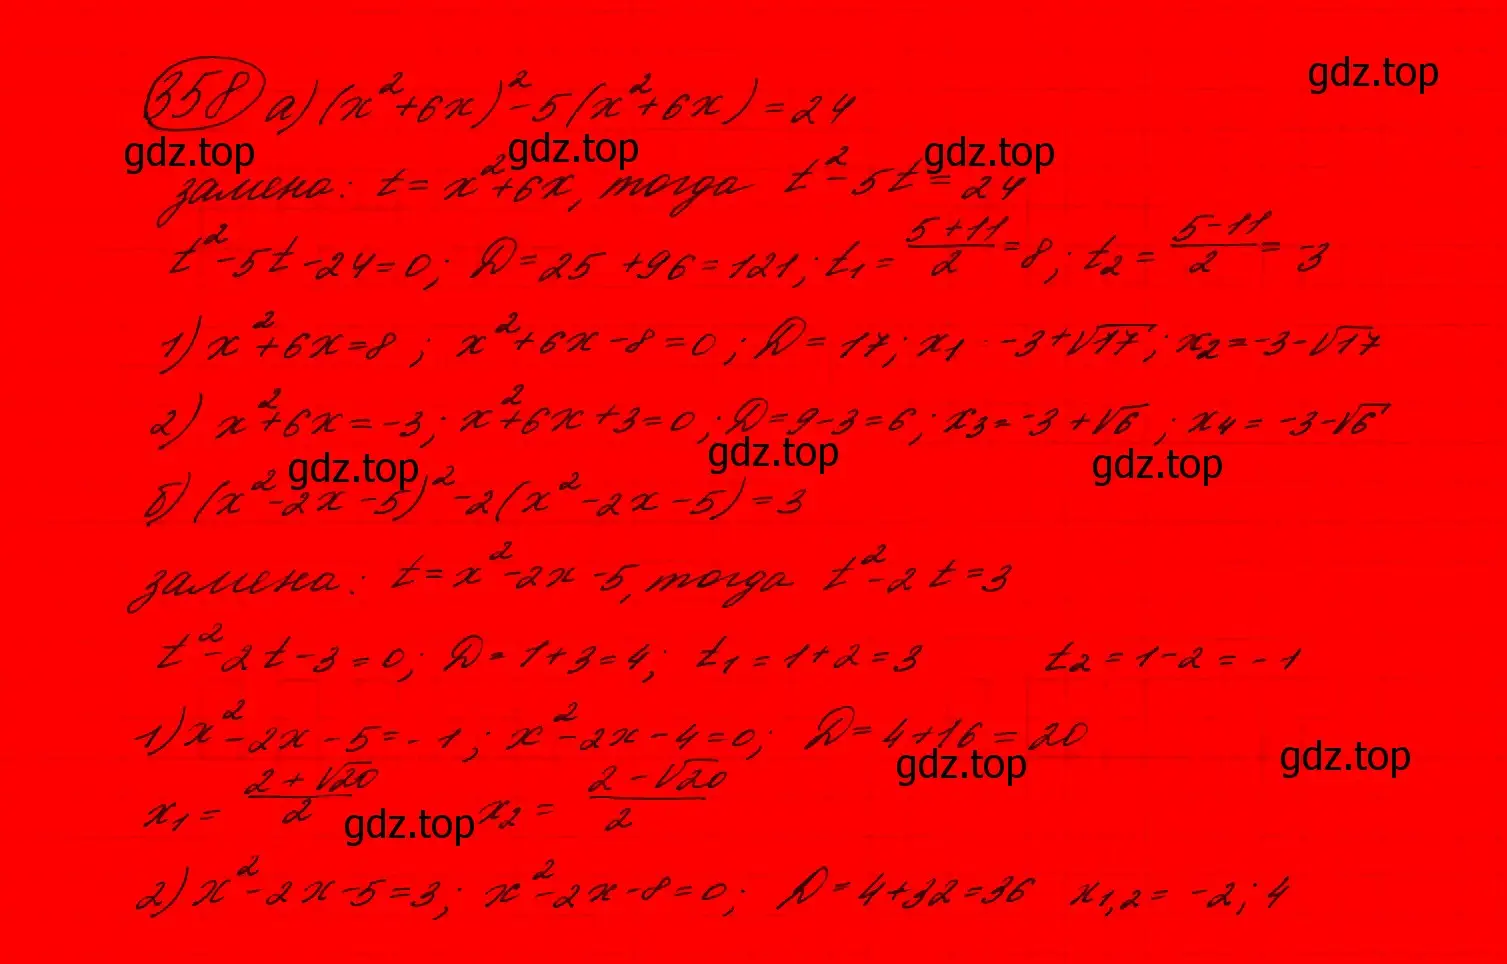 gdz.top
358 а) (x²+6x)²-5(x²+6x)=24
gdz.top gdz.top gdz.top
замена: t=x²+6x, тогда t²-5t=24
t²-5t-24=0; D=25+96=121; t₁=(5+11)/2=8; t₂=(5-11)/2=-3
1) x²+6x=8; x²+6x-8=0; D=17; x₁ -3+√17; x₂=-3-√17
2) x²+6x=-3; x²+6x+3=0; D=9-3=6; x₃=-3+√6; x₄=-3-√6
gdz.top gdz.top gdz.top
б) (x²-2x-5)²-2(x²-2x-5)=3
замена: t=x²-2x-5, тогда t²-2t=3
t²-2t-3=0; D=1+3=4; t₁=1+2=3 t₂=1-2=-1
1) x²-2x-5=-1; x²-2x-4=0; D=4+16=20
gdz.top gdz.top
x₁=(2+√20)/2 x₂=(2-√20)/2
gdz.top
2) x²-2x-5=3; x²-2x-8=0; D=4+32=36 x₁,₂=-2; 4